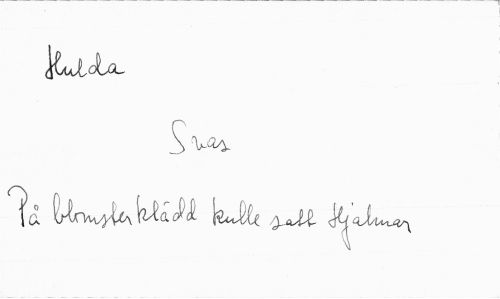 Hulda
Svas
På blomsterklädd kulle satt Hjalmar